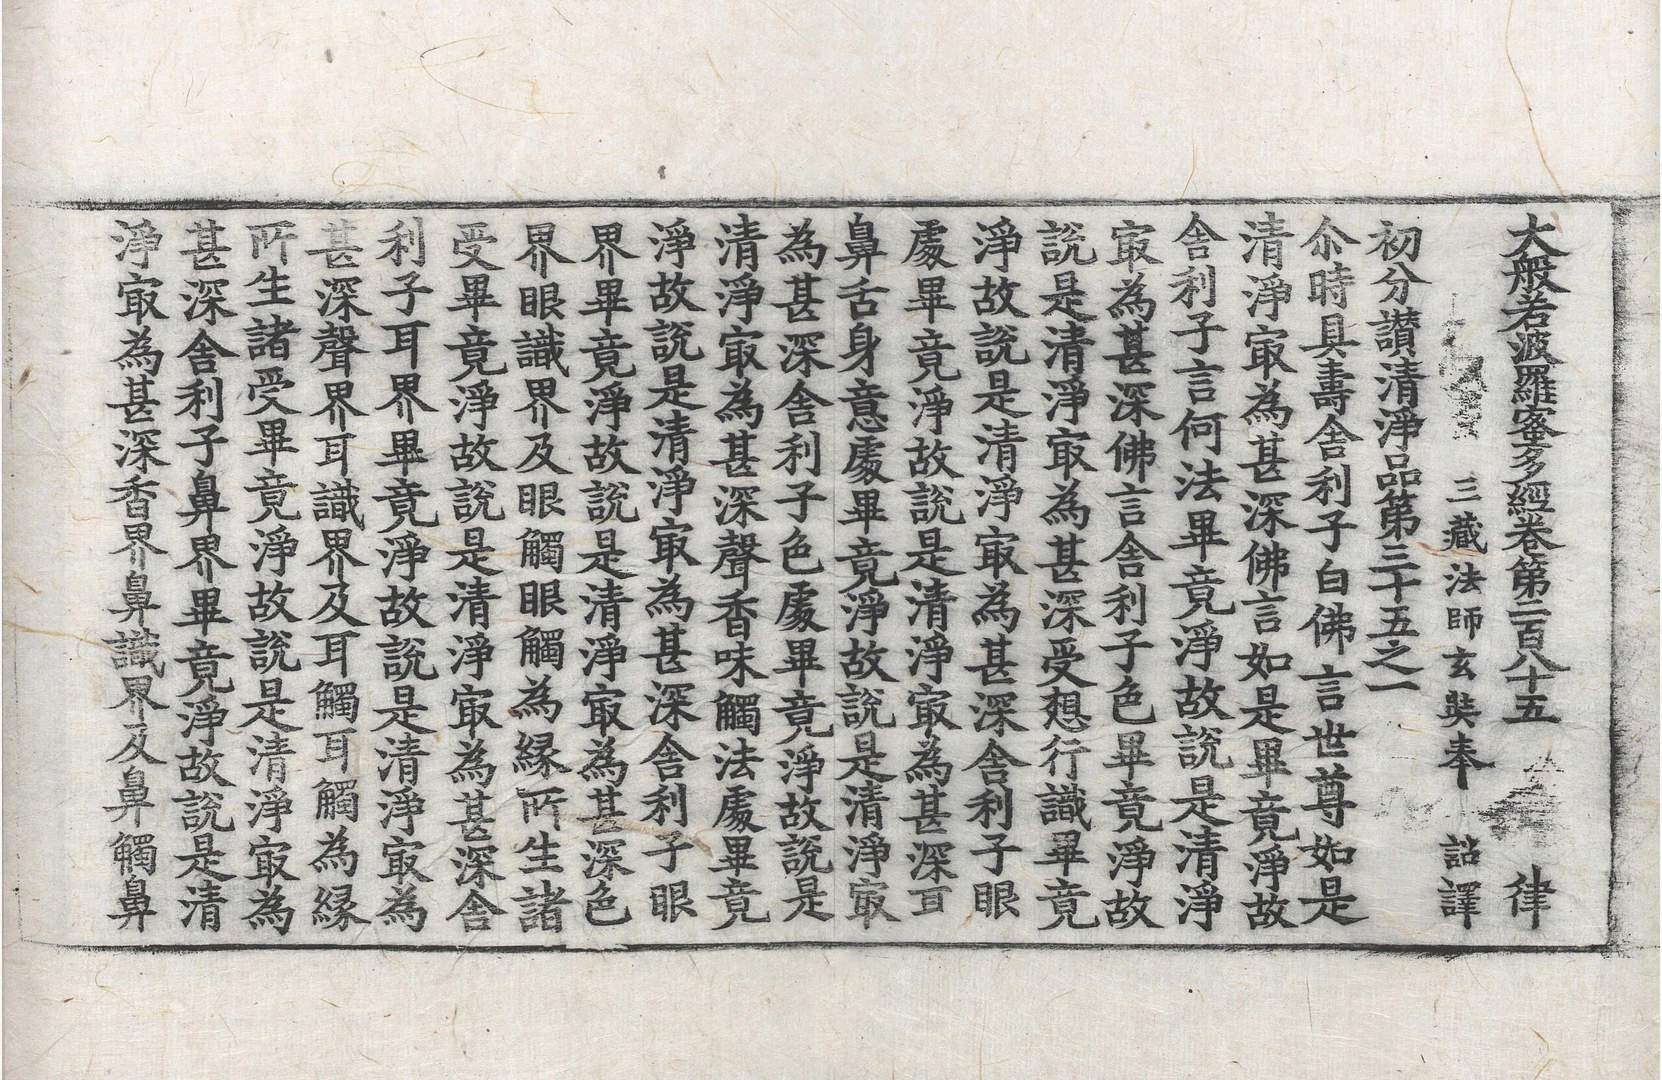 大般若波羅蜜多經卷第二百八十五 律
三藏法師玄奘奉 詔譯
初分讃清淨品第三十五之一
尒時具壽舍利子白佛言世尊如是
清淨㝡為甚深佛言如是畢竟淨故
舍利子言何法畢竟淨故說是清淨
㝡為甚深佛言舍利子色畢竟淨故
說是清淨㝡為甚深受想行識畢竟
淨故說是清淨㝡為甚深舍利子眼
處畢竟淨故說是清淨㝡為甚深耳
鼻舌身意處畢竟淨故說是清淨㝡
為甚深舍利子色處畢竟淨故說是
清淨㝡為甚深聲香味觸法處畢竟
淨故說是清淨㝡為甚深舍利子眼
界畢竟淨故說是清淨㝡為甚深色
界眼識界及眼觸眼觸為縁所生諸
受畢竟淨故說是清淨㝡為甚深舍
利子耳界畢竟淨故說是清淨㝡為
甚深聲界耳識界及耳觸耳觸為縁
所生諸受畢竟淨故說是清淨㝡為
甚深舍利子鼻界畢竟淨故說是清
淨㝡為甚深香界鼻識界及鼻觸鼻